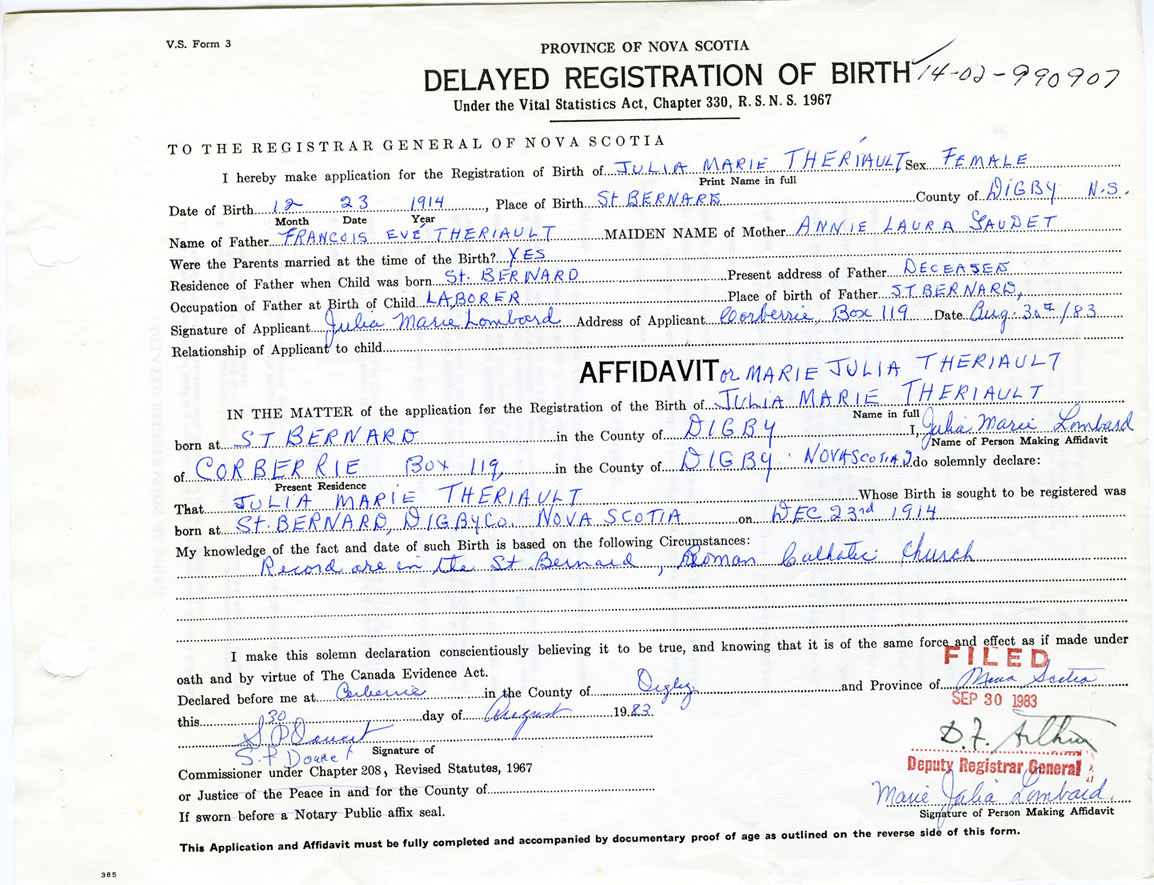 V.S. Form 3
PROVINCE OF NOVA SCOTIA
DELAYED REGISTRATION OF BIRTH 14-02-990907
Under the Vital Statistics Act, Chapter 330, R.S.N.S. 1967
TO THE REGISTRAR GENERAL OF NOVA SCOTIA
I hereby make application for the Registration of Birth of JULIA MARIE THERIAULT, Sex FEMALE
Print Name in full
Date of Birth 12 23 1914, Place of Birth St BERNARD County of DIGBY N.S.
Month Date Year
Name of Father FRANCOIS EVÉ THERIAULT MAIDEN NAME of Mother ANNIE LAURA GAUDET
Were the Parents married at the time of the Birth? YES
Residence of Father when Child was born St. BERNARD Present address of Father DECEASED
Occupation of Father at Birth of Child LABORER Place of birth of Father ST BERNARD,
Signature of Applicant Julia Marie Lombard Address of Applicant Corberrie, Box 119 Date Aug. 30 /83
Relationship of Applicant to child
AFFIDAVIT or MARIE JULIA THERIAULT
IN THE MATTER of the application for the Registration of the Birth of JULIA MARIE THERIAULT
Name in full
born at ST BERNARD in the County of DIGBY I, Julia Marie Lombard
Name of Person Making Affidavit
of CORBERRIE BOX 119, in the County of DIGBY NOVA SCOTIA do solemnly declare:
Present Residence
That JULIA MARIE THERIAULT Whose Birth is sought to be registered was
born at St. BERNARD, DIGBY Co. NOVA SCOTIA on DEC 23rd 1914
My knowledge of the fact and date of such Birth is based on the following Circumstances:
Record are in the St Bernard, Roman Catholic Church
I make this solemn declaration conscientiously believing it to be true, and knowing that it is of the same force and effect as if made under
oath and by virtue of The Canada Evidence Act.
FILED
Declared before me at Corberrie in the County of Digby and Province of Nova Scotia
SEP 30 1983
this 30 day of August 1983
S P Doucet
S. P Doucet Signature of
D. F. Arthur
Deputy Registrar General
Commissioner under Chapter 208, Revised Statutes, 1967
or Justice of the Peace in and for the County of
Marie Julia Lombard
Signature of Person Making Affidavit
If sworn before a Notary Public affix seal.
This Application and Affidavit must be fully completed and accompanied by documentary proof of age as outlined on the reverse side of this form.
385